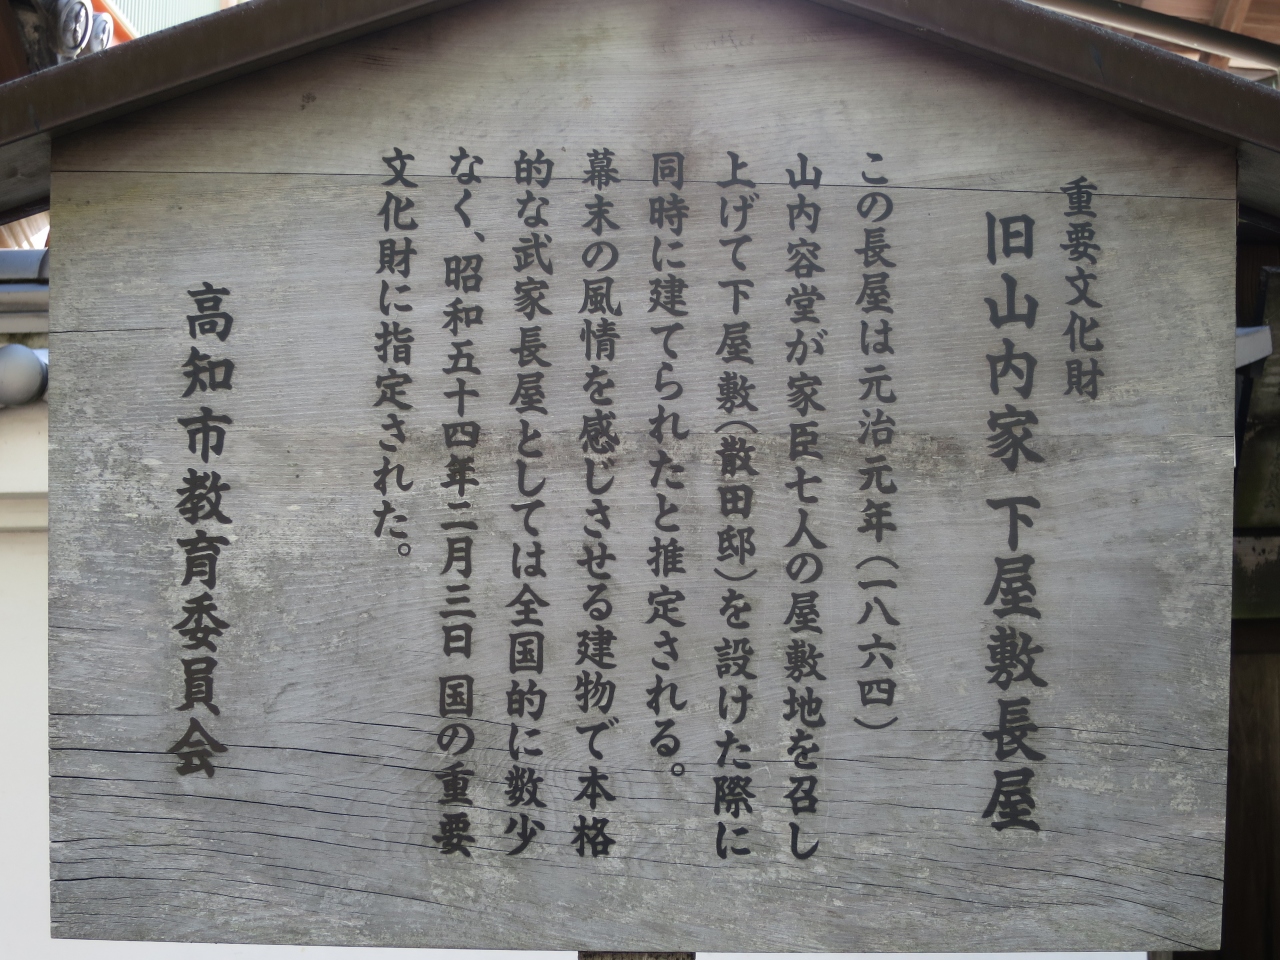 重要文化財
旧山内家下屋敷長屋
この長屋は元治元年(一八六四)
山内容堂が家臣七人の屋敷地を召し
上げて下屋敷(散田邸)を設けた際に
同時に建てられたと推定される。
幕末の風情を感じさせる建物で本格
的な武家長屋としては全国的に数少
なく、昭和五十四年二月三日国の重要
文化財に指定された。
高知市教育委員会